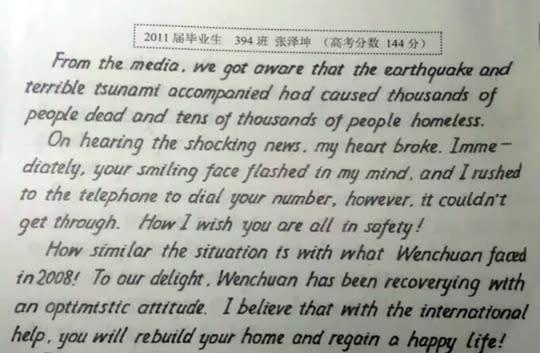 2011 届毕业生 394 班 张泽坤 (高考分数 144 分)
From the media, we got aware that the earthquake and
terrible tsunami accompanied had caused thousands of
people dead and tens of thousands of people homeless.
On hearing the shocking news, my heart broke. Imme-
diately, your smiling face flashed in my mind, and I rushed
to the telephone to dial your number, however, it couldn't
get through. How I wish you are all in safety!
How similar the situation is with what Wenchuan faced
in 2008! To our delight, Wenchuan has been recoverying with
an optimistic attitude. I believe that with the international
help, you will rebuild your home and regain a happy life!